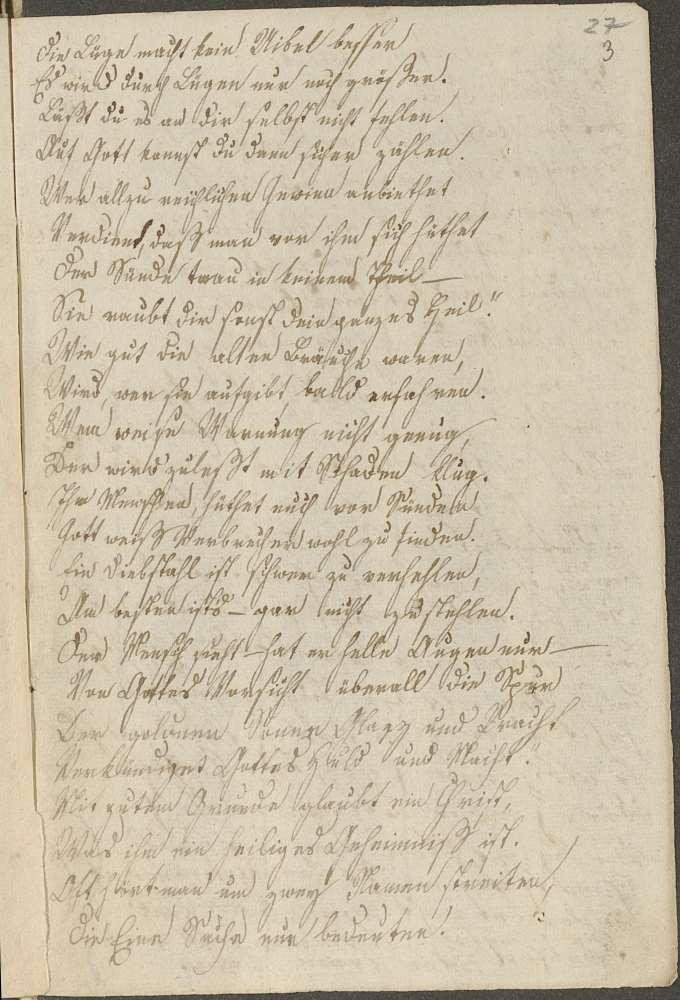 27
3
Die Lüge macht kein Uibel besser
Es wird durch Lügen nur noch größer.
Läßt du es an dir selbst nicht fehlen.
Auf Gott kannst du dann sicher zählen.
Wer allzu reichlichen Gewinn anbiethet
Verdient, daß man vor ihm sich hüthet
Der Sünde trau in keinem Theil —
Sie raubt dir sonst dein ganzes Heil!"
Wie gut die alten Bräuche waren,
Wird, wer sie aufgibt, bald erfahren.
Wem weise Warnung nicht genug,
Der wird zuletzt mit Schaden klug.
Ihr Menschen, hüthet euch vor Sünden
Gott weiß Verbrecher wohl zu finden.
Ein Diebstahl ist schwer zu verhehlen,
Am besten ists — gar nicht zu stehlen.
Der Mensch sieht — hat er helle Augen nur —
Von Gottes Vorsicht überall die Spur
Der goldnen Sonne Glanz und Pracht
Verkündiget Gottes Huld und Macht."
Mit gutem Grunde glaubt ein Christ,
Was ihm ein heiliges Geheimniß ist.
Oft hört man um zwey Namen streiten,
Die Eine Sache nur bedeuten!